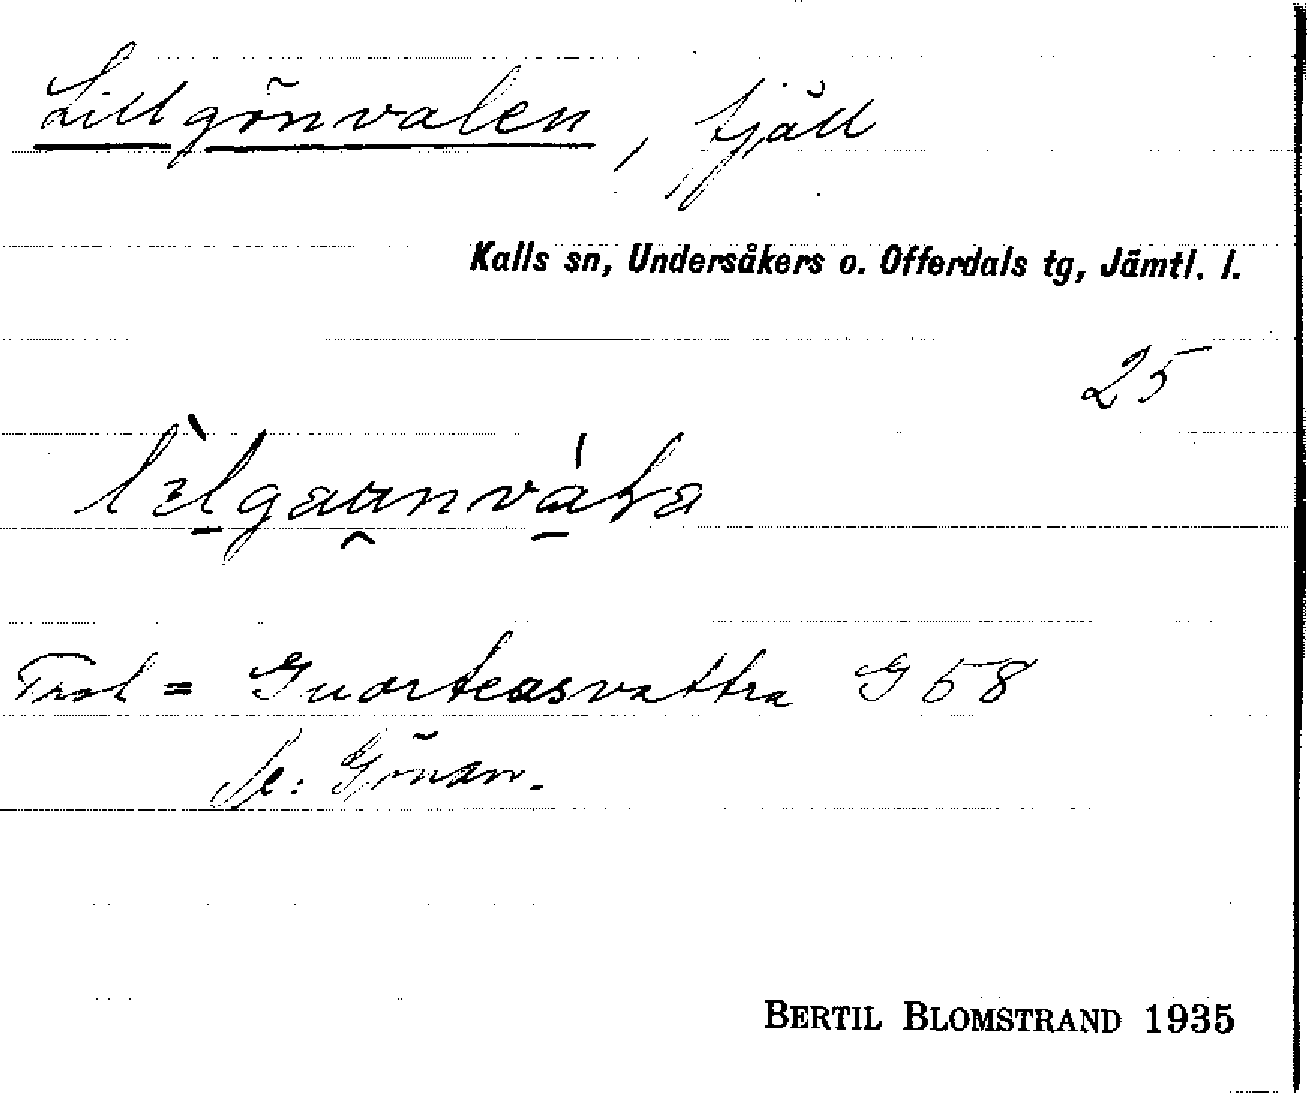 Lillgönvalen, fjäll
Kalls sn, Undersåkers o. Offerdals tg, Jämtl. l.
25
Trol = Guorteasvattra G 58
Se: Gönan.
BERTIL BLOMSTRAND 1935